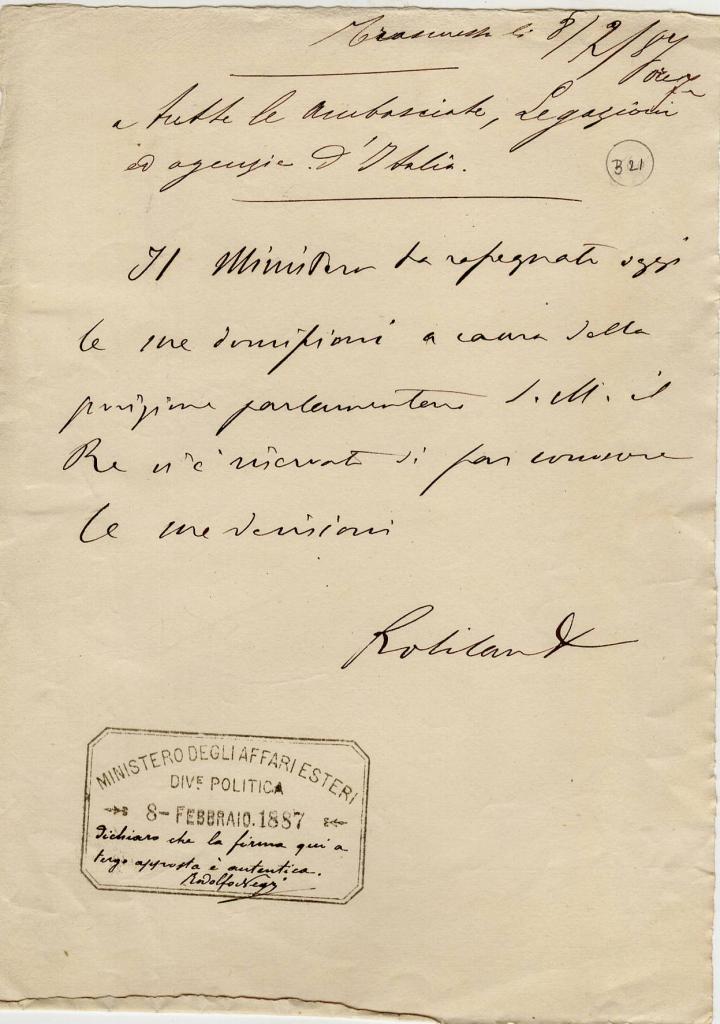 Trasmesso li 8/2/87
ore 7
a tutte le ambasciate, Legazioni
ed agenzie d'Italia.
B 21
Il Ministero ha rassegnato oggi
le sue dimissioni a causa della
posizione parlamentare S. M. il
Re si è riservato di far conoscere
le sue decisioni
Robilant
MINISTERO DEGLI AFFARI ESTERI
DIVE POLITICA
8 - FEBBRAIO. 1887
dichiaro che la firma qui a
tergo apposta è autentica.
Rodolfo Negri